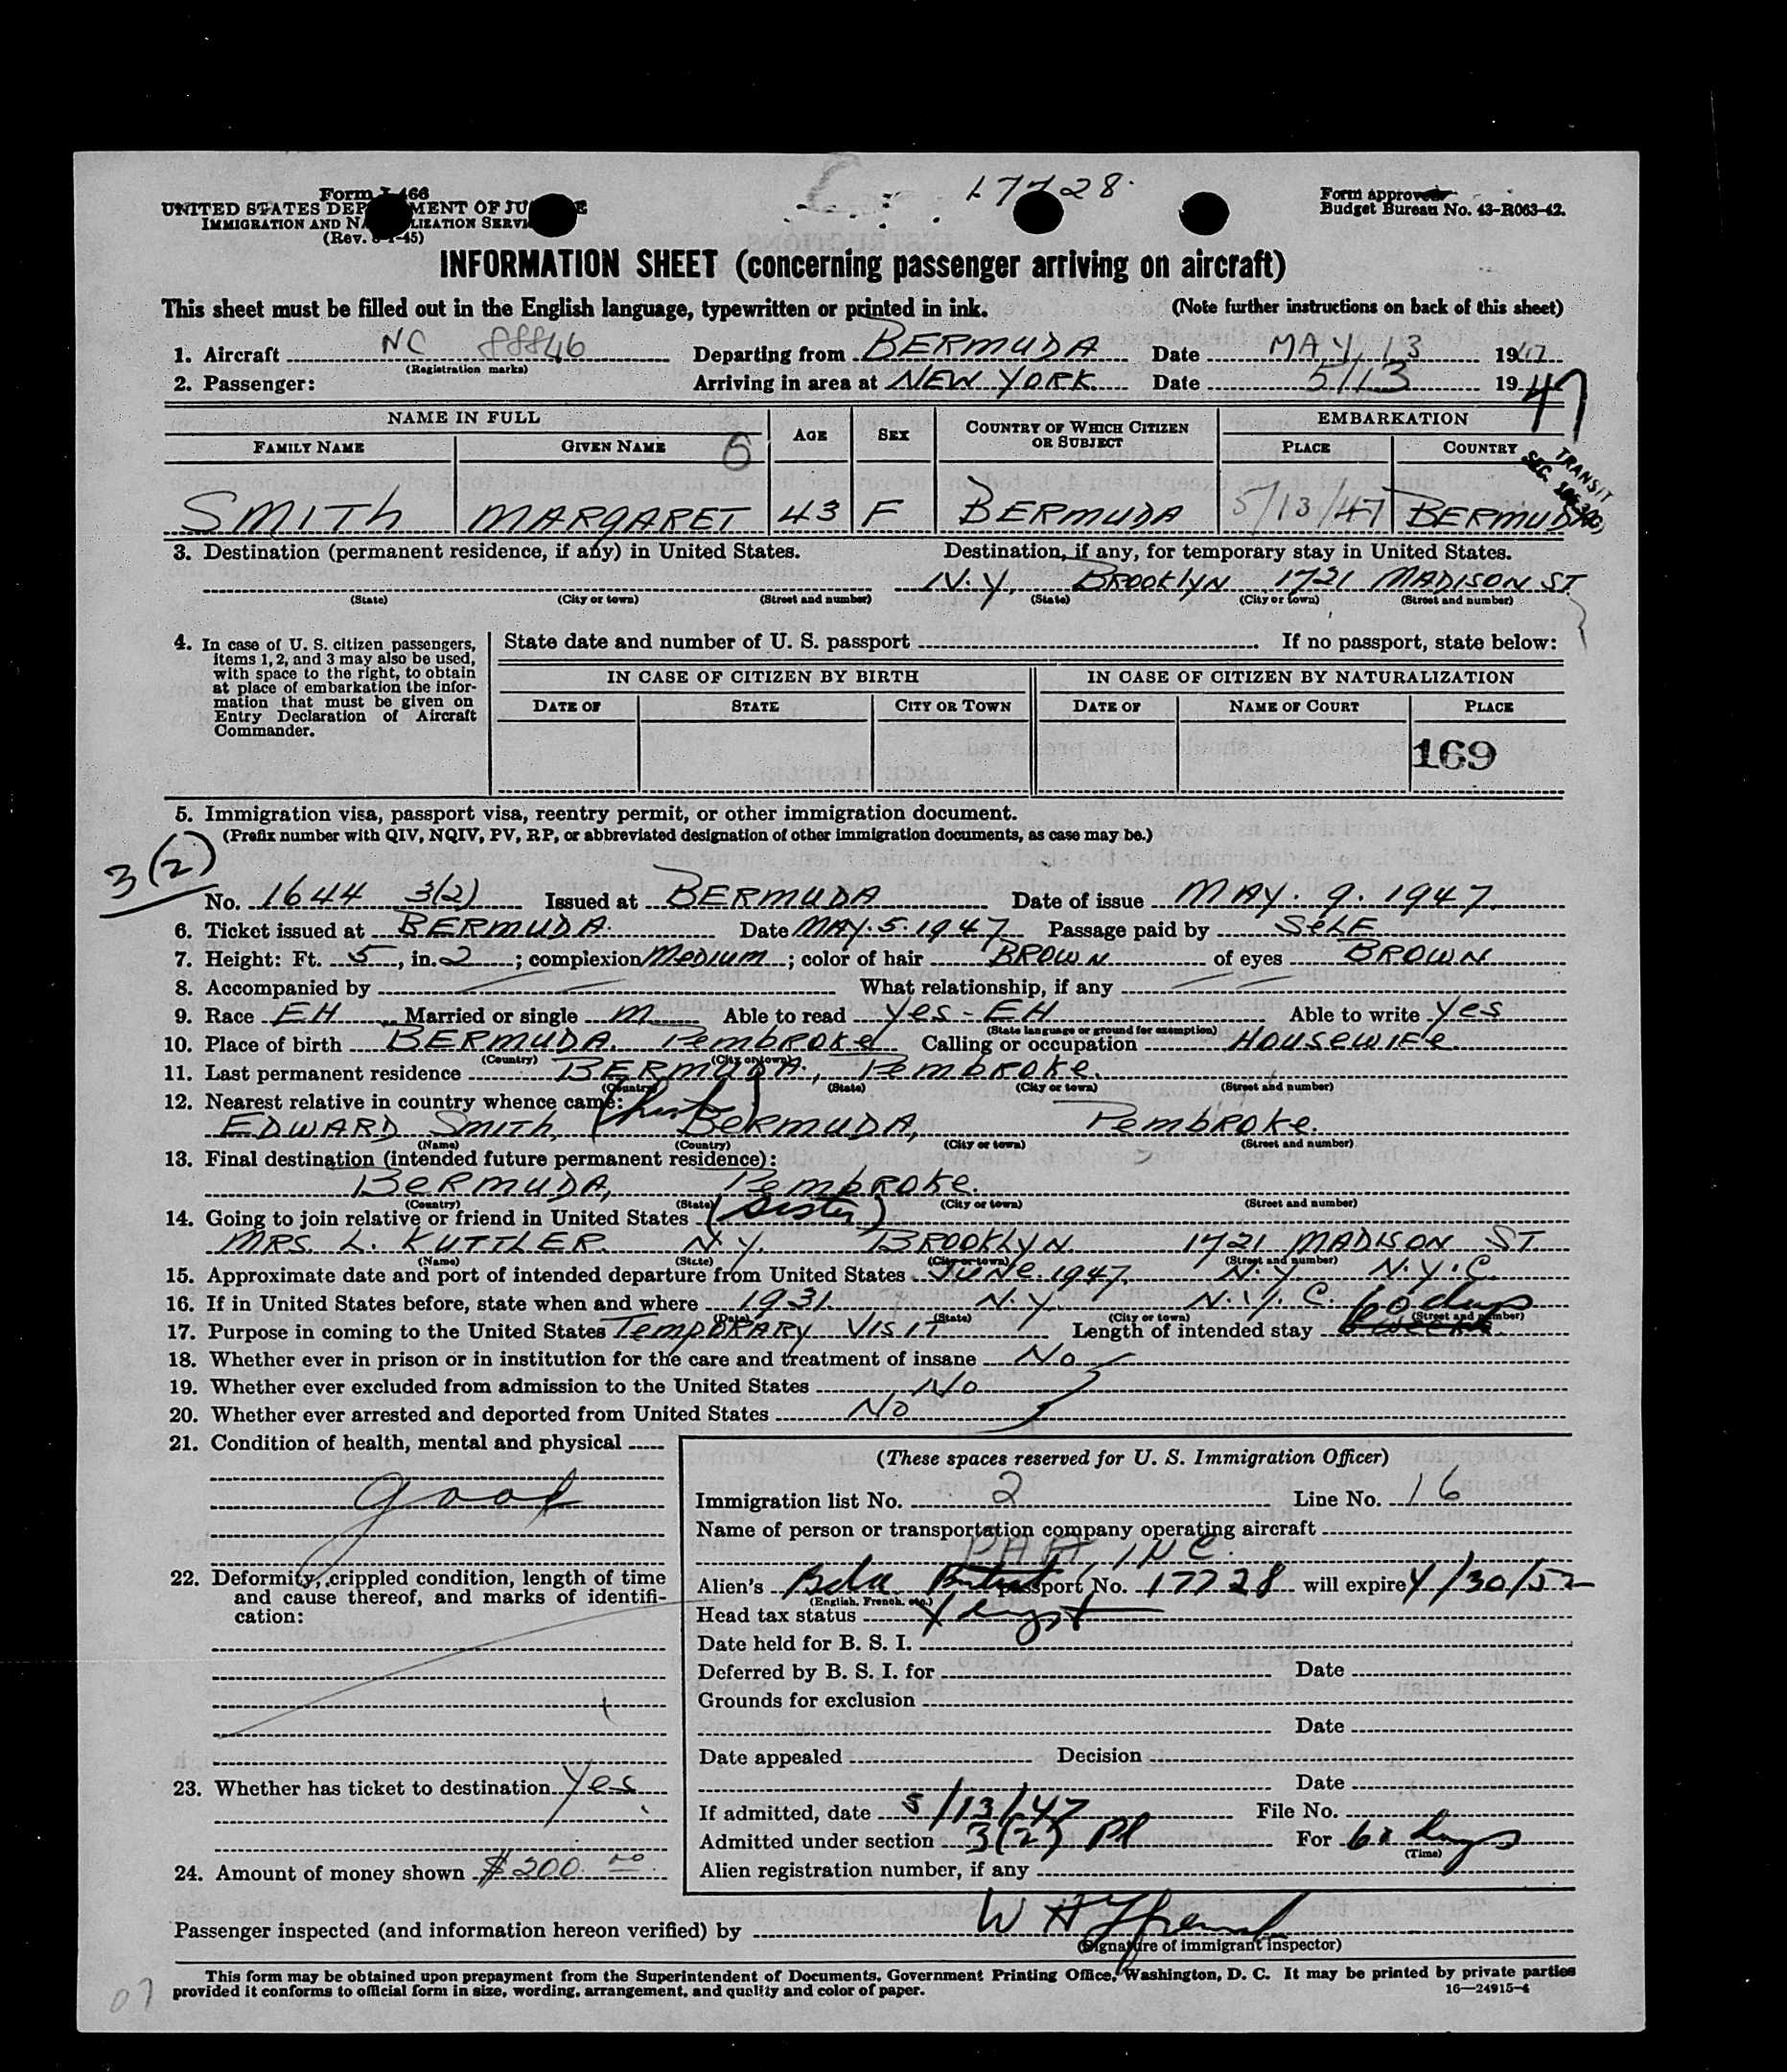 17728
Form I-466
UNITED STATES DEPARTMENT OF JUSTICE
IMMIGRATION AND NATURALIZATION SERVICE
(Rev. -45)
Form approved
Budget Bureau No. 43-R063-42.
INFORMATION SHEET (concerning passenger arriving on aircraft)
This sheet must be filled out in the English language, typewritten or printed in ink. (Note further instructions on back of this sheet)
1. Aircraft NC 88846 Departing from BERMUDA Date MAY. 13 1947
(Registration marks)
2. Passenger: Arriving in area at NEW YORK. Date 5/13 1947
NAME IN FULL AGE SEX COUNTRY OF WHICH CITIZEN OR SUBJECT EMBARKATION
FAMILY NAME GIVEN NAME PLACE COUNTRY
TRANSIT
SMITH MARGARET 43 F BERMUDA 5/13/47 BERMUDA
3. Destination (permanent residence, if any) in United States. Destination, if any, for temporary stay in United States.
N.Y. BROOKLYN 1721 MADISON ST
(State) (City or town) (Street and number) (State) (City or town) (Street and number)
4. In case of U. S. citizen passengers, items 1, 2, and 3 may also be used, with space to the right, to obtain at place of embarkation the information that must be given on Entry Declaration of Aircraft Commander.
State date and number of U. S. passport If no passport, state below:
IN CASE OF CITIZEN BY BIRTH IN CASE OF CITIZEN BY NATURALIZATION
DATE OF STATE CITY OR TOWN DATE OF NAME OF COURT PLACE
169
5. Immigration visa, passport visa, reentry permit, or other immigration document.
(Prefix number with QIV, NQIV, PV, RP, or abbreviated designation of other immigration documents, as case may be.)
3(2)
No. 1644 3(2) Issued at BERMUDA Date of issue MAY. 9. 1947.
6. Ticket issued at BERMUDA. Date MAY. 5. 1947 Passage paid by SELF
7. Height: Ft. 5, in. 2; complexion MEDIUM; color of hair BROWN of eyes BROWN
8. Accompanied by What relationship, if any
9. Race EH Married or single M Able to read Yes - EH Able to write Yes
(State language or ground for exemption)
10. Place of birth BERMUDA. Pembroke Calling or occupation HOUSEWIFE.
(Country) (City or town)
11. Last permanent residence BERMUDA, Pembroke.
(Country) (State) (City or town) (Street and number)
12. Nearest relative in country whence came:
EDWARD SMITH, BERMUDA, Pembroke.
(Name) (Country) (City or town) (Street and number)
13. Final destination (intended future permanent residence):
BERMUDA, Pembroke.
(Country) (State) (City or town) (Street and number)
14. Going to join relative or friend in United States (sister)
MRS. L. KUTTLER. N.Y. BROOKLYN. 1721 MADISON ST.
(Name) (State) (City or town) (Street and number)
15. Approximate date and port of intended departure from United States JUNE. 1947. N.Y. N.Y.C.
16. If in United States before, state when and where 1931. N.Y. N.Y.C.
(Date) (State) (City or town) (Street and number)
17. Purpose in coming to the United States TEMPORARY VISIT Length of intended stay 60 days
18. Whether ever in prison or in institution for the care and treatment of insane No
19. Whether ever excluded from admission to the United States No
20. Whether ever arrested and deported from United States No
21. Condition of health, mental and physical
good
22. Deformity, crippled condition, length of time and cause thereof, and marks of identification:
23. Whether has ticket to destination Yes
24. Amount of money shown $200.00
(These spaces reserved for U. S. Immigration Officer)
Immigration list No. 2 Line No. 16
Name of person or transportation company operating aircraft
PAA INC.
Alien's Bda. British passport No. 17728 will expire 4/30/52
(English, French, etc.)
Head tax status
Date held for B. S. I.
Deferred by B. S. I. for Date
Grounds for exclusion
Date
Date appealed Decision
Date
If admitted, date 5/13/47 File No.
Admitted under section 3(2) For 60 days
(Time)
Alien registration number, if any
Passenger inspected (and information hereon verified) by
(Signature of immigrant inspector)
This form may be obtained upon prepayment from the Superintendent of Documents, Government Printing Office, Washington, D. C. It may be printed by private parties
provided it conforms to official form in size, wording, arrangement, and quality and color of paper. 16—24915-4
07